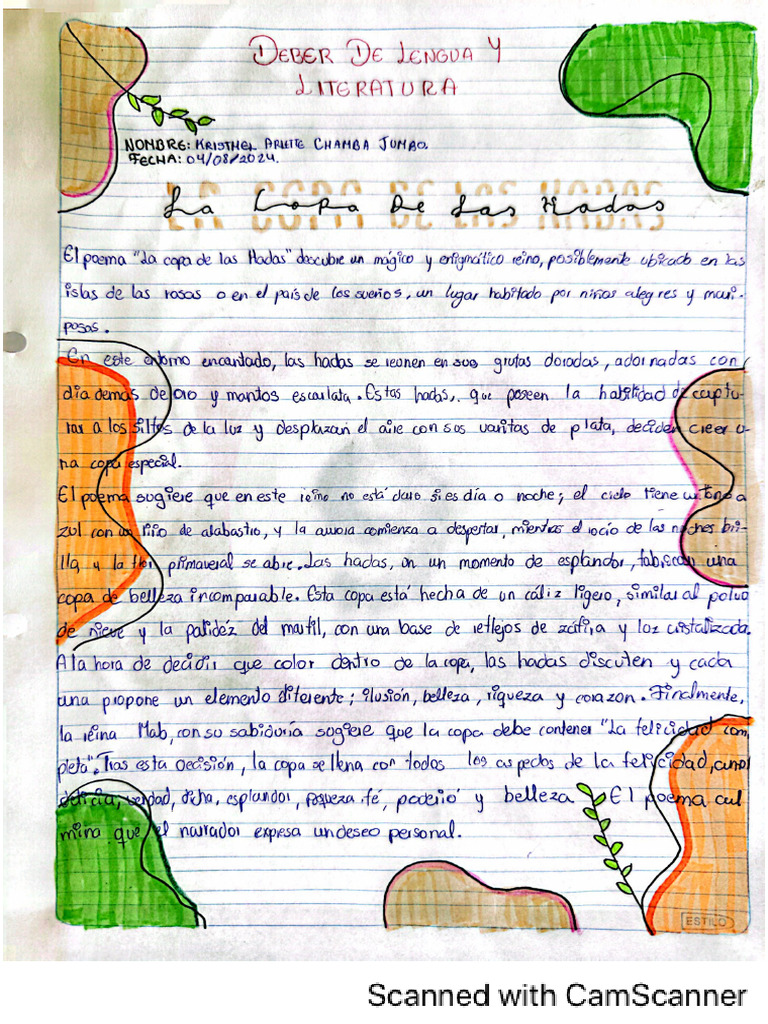 DEBER DE LENGUA Y
LITERATURA
NOMBRE: KRISTHEL ARLETTE CHAMBA JUMBO.
FECHA: 04/08/2024.
La Copa De Las Hadas
El poema "La copa de las Hadas" descubre un mágico y enigmático reino, posiblemente ubicado en las
islas de las rosas o en el país de los sueños, un lugar habitado por niños alegres y mari-
posas.
En este entorno encantado, las hadas se reunen en sus grutas doradas, adornadas con
diademas de oro y mantos escarlata. Estas hadas, que poseen la habilidad de captu-
rar a los silfos de la luz y desplazan el aire con sus varitas de plata, deciden creer u-
na copa especial.
El poema sugiere que en este reino no está claro si es día o noche; el cielo tiene un tono a
zul con un lirio de alabastro, y la aurora comienza a despertar, mientras el rocío de las noches bri-
lla, y la flor primaveral se abre. Las hadas, en un momento de esplandor, fabrican una
copa de belleza incomparable. Esta copa está hecha de un cáliz ligero, similar al polvo
de nieve y la palidéz del marfil, con una base de reflejos de zafira y luz cristalizada.
A la hora de decidir que color dentro de la copa, las hadas discuten y cada
una propone un elemento diferente; ilusión, belleza, riqueza y corazon. Finalmente,
la reina Mab, con su sabiduría sugiere que la copa debe contener "La felicidad com
pleta". Tras esta decisión, la copa se llena con todos los aspectos de la felicidad, amor
delicia, verdad, dicha, esplandor, fe, poderío y belleza. El poema cul
mina que el narrador expresa un deseo personal.
ESTILO
Scanned with CamScanner